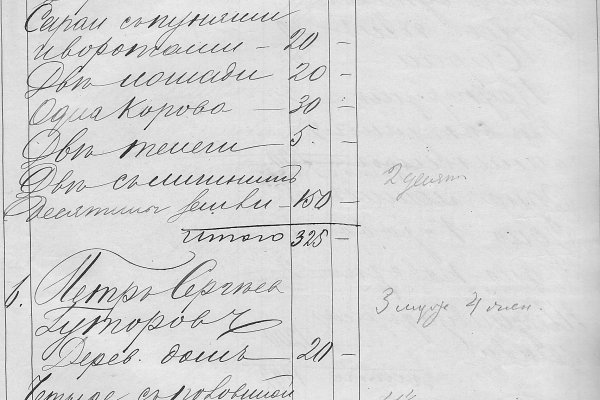 Сараи съ пунями
и воротами — 20 —
Двѣ лошади 20 —
Одна Корова — 30 —
Двѣ телеги 5. —
Двѣ съ
Десятины земли — 150 — 2 десят.
Итого 325 —
6. Петръ Сергѣев
Гуторовъ 3 муж 4 жен.
Дерев. домъ — 20 —
Четыре съ половиной